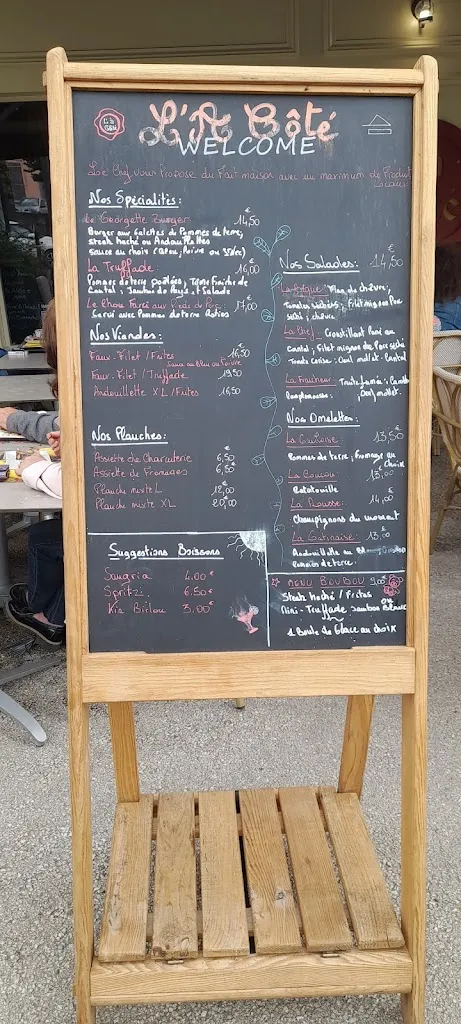 L'A Côté
WELCOME
Le Chef vous Propose du Fait maison avec un maximum de Produit
Locaux
Nos Spécialités:
Le Georgette Burger 14,50
Burger aux Galettes de Pommes de terre,
Steak haché ou Andouillettes
Sauce au choix
La Truffade: 16,00
Pommes de terre Poêlées, Tome Fraîche de
Cantal, Jambon de Pays + Salade
Le Chou Farci aux Pieds de Porc 17,00
Servi avec Pommes de terre Roties
Nos Viandes:
Faux-Filet / Frites 16,50
Sauce au Bleu ou Poivre
Faux-Filet / Truffade 19,50
Andouillette XL / Frites 16,50
Nos Planches:
Assiette de Charcuterie 6,50€
Assiette de Fromages 6,50€
Planche mixte L 12,00€
Planche mixte XL 20,00€
Suggestions Boissons
Sangria 4.00€
Spritz: 6.50€
Kir 3.00€
Nos Salades: 14,50€
chèvre,
Filet mignon Porc
séché, chèvre
La Chef: Croustillant Pané au
Cantal, Filet mignon de Porc séché
Tomate cerise, Oeuf mollet, Cantal
La Fraîcheur: Truite fumée,
Pamplemousse, Oeuf mollet.
Nos Omelettes:
13,50€
Pommes de terre, fromage au
choix
La Coucou: 13,00€
Ratatouille
La Mousse: 14,00€
Champignons du moment
13,00€
Andouillette au
Pommes de terre
MENU BOUDOU 9,00€
Steak Haché / Frites
ou
Mini-Truffade Jambon Blanc
1 Boule de Glace au choix